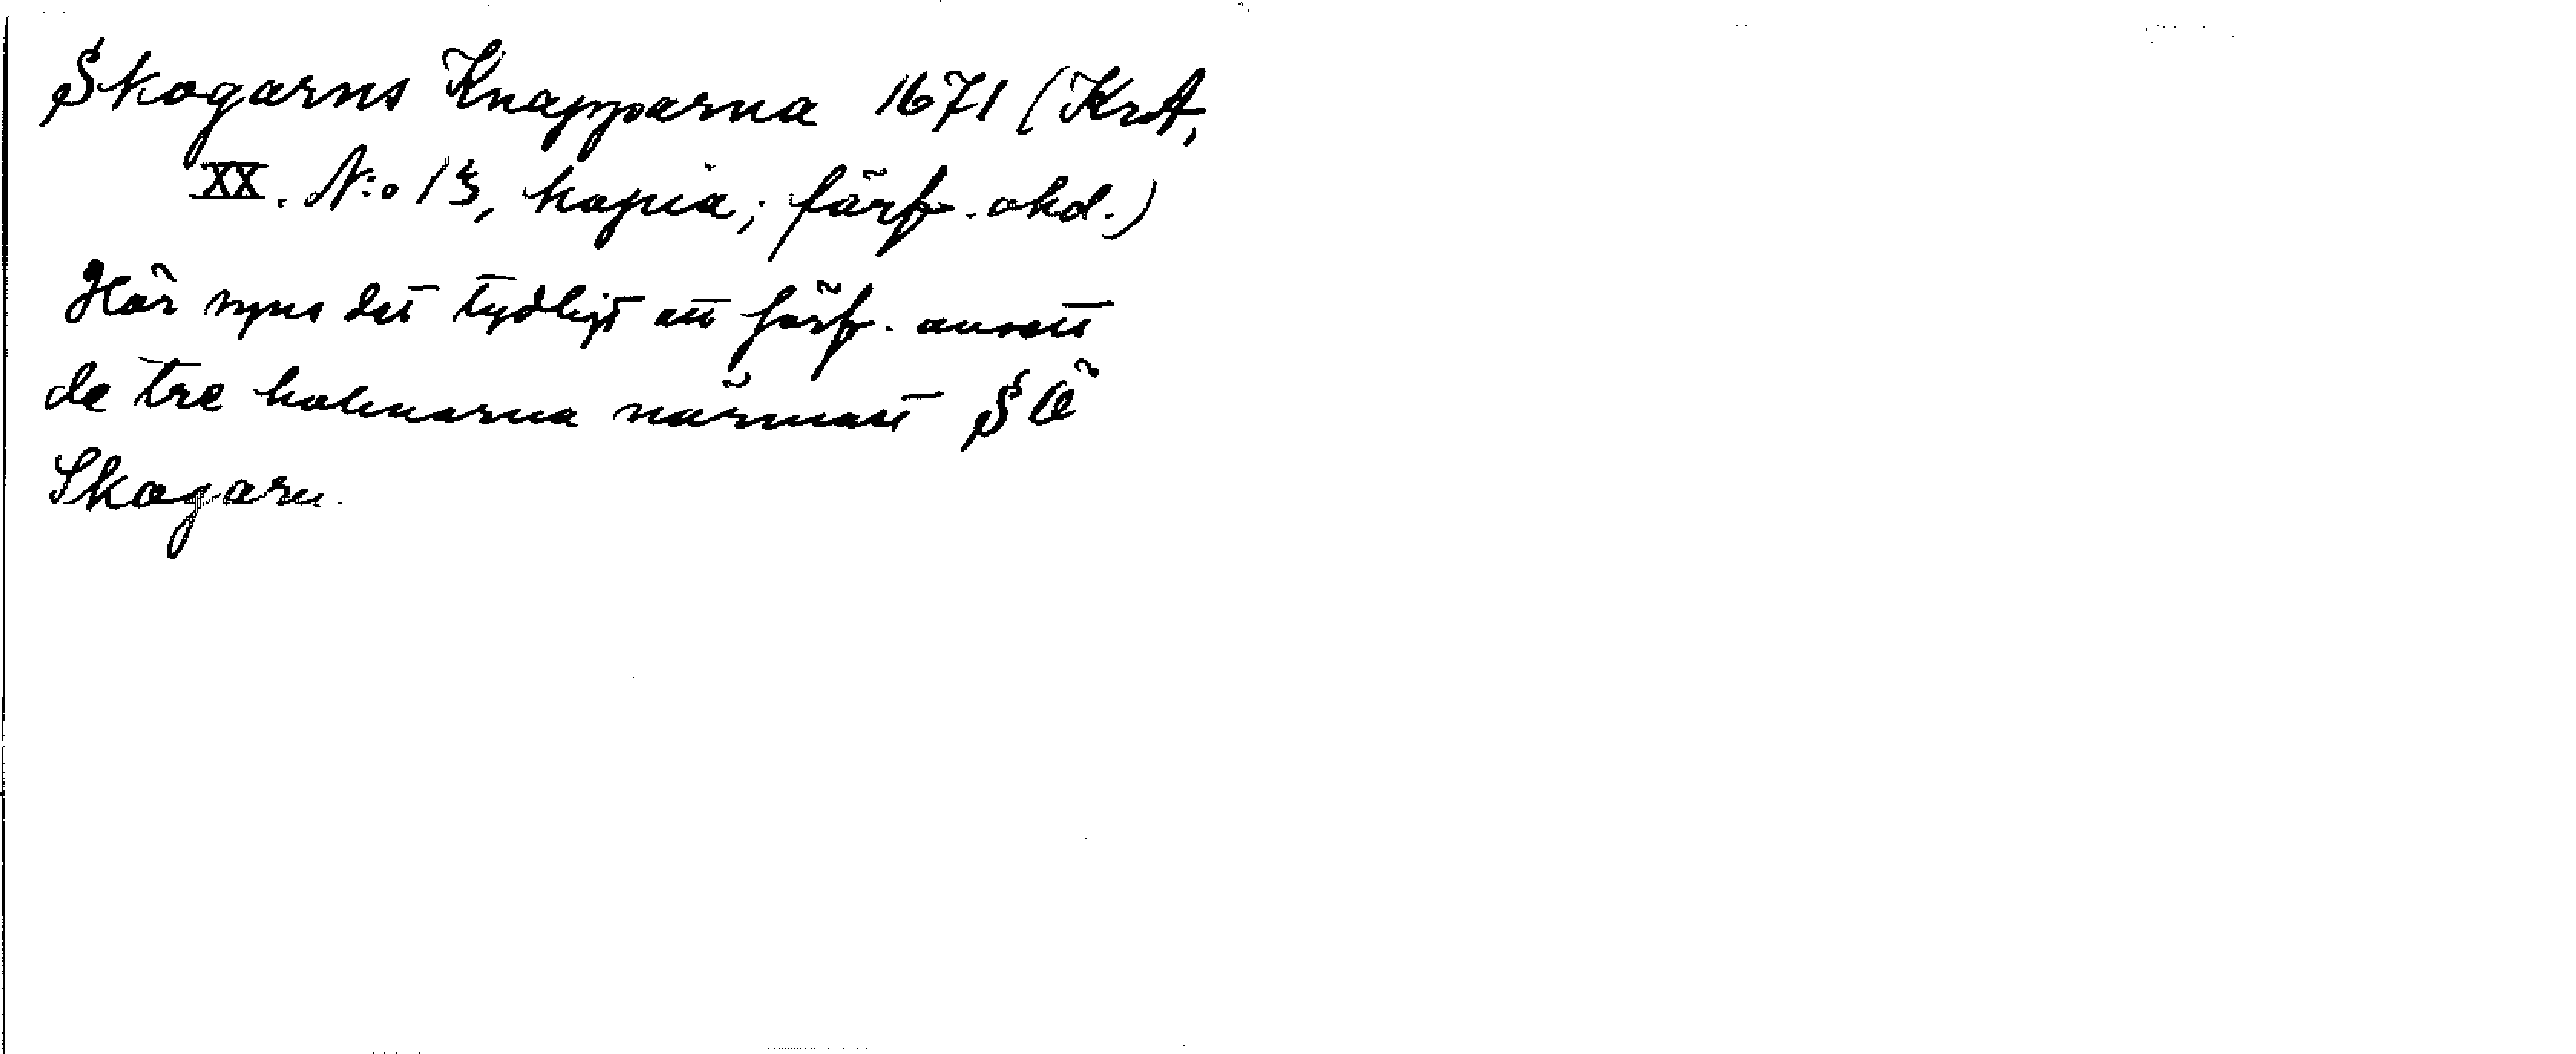 Skogarns Knapparna 1671 (KrA,
XX. N:o 13, kopia; förf. okd.)
Här syns det tydligt att förf. avsett
de tre holmarna närmast SÖ
Skogarn.